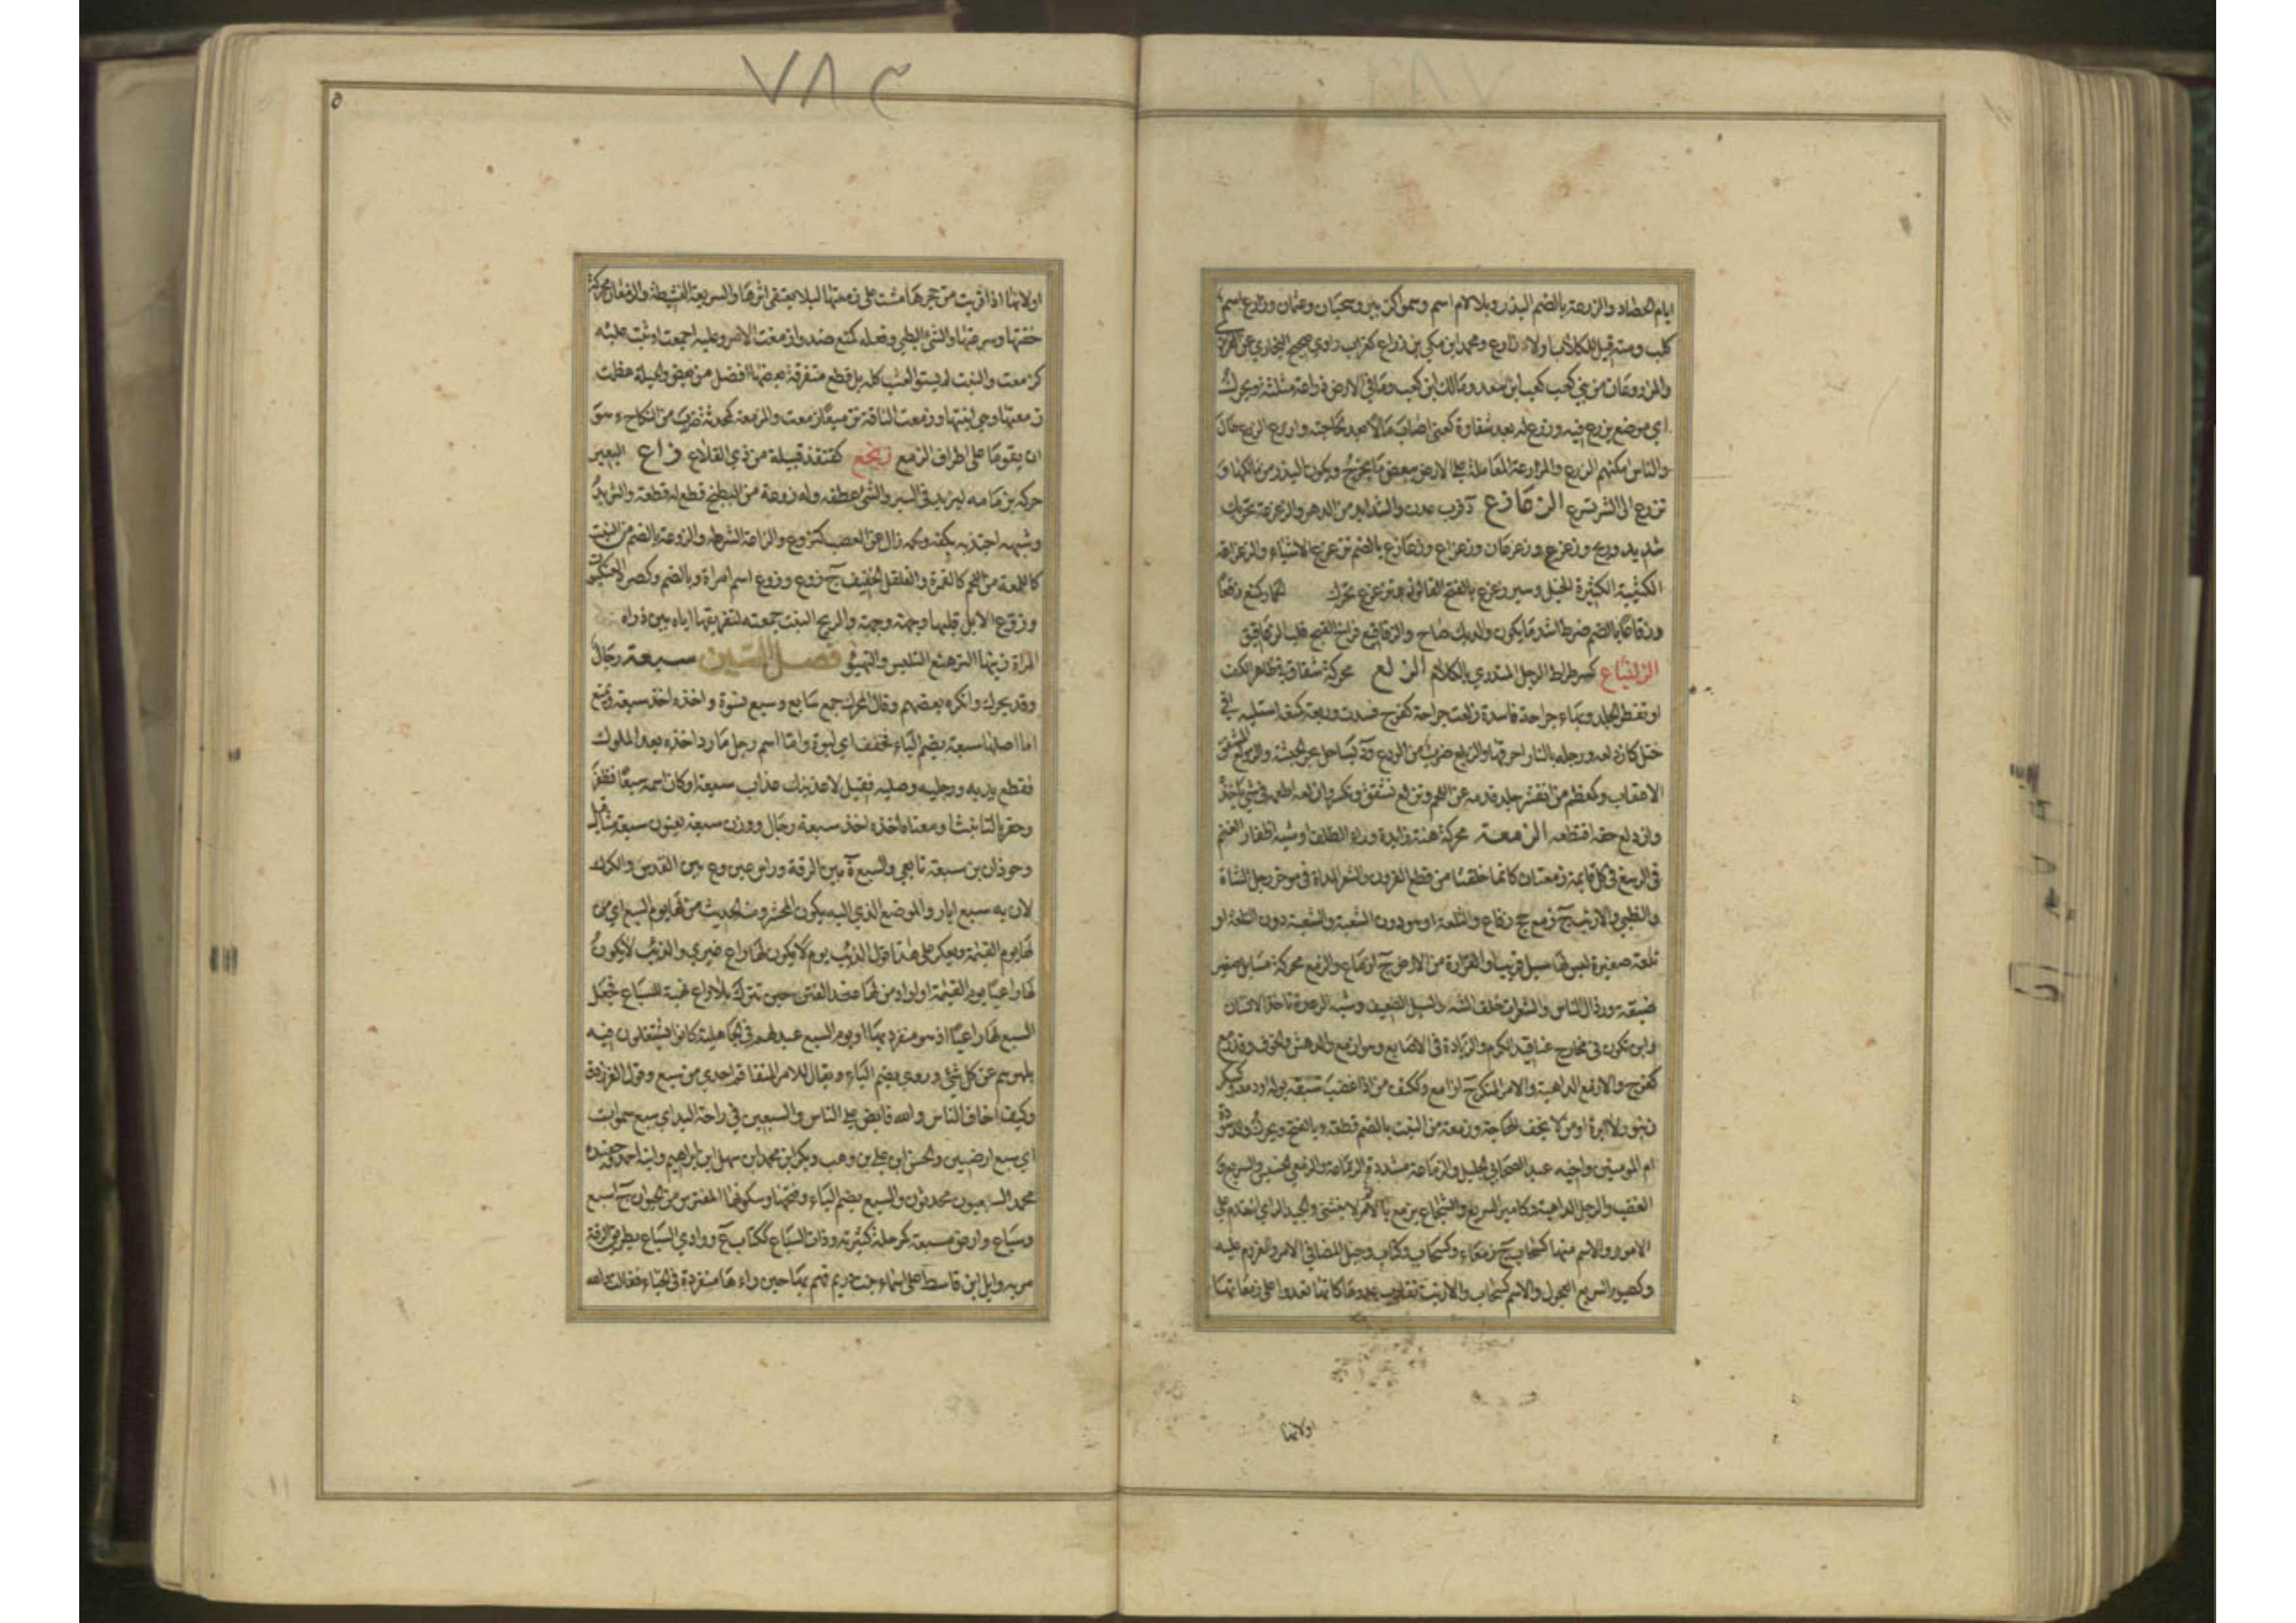 ايام الحصاد والزرعة بالضم البذر وبلا لام اسم وسموا كزبير وسحبان وعثمان وزارع اسم
كلب ومنه قيل للكلاب اولاد زارع ومحمد ابن مكي بن زراع كغراب راوي صحيح البخاري عن
والمزروعان من بني كعب كعب ابن سعد ومالك ابن كعب وما في الارض زراعة مثلثة ويحرك
اي موضع يزرع فيه وزرع له بعد شقاوة كعني اصاب مالا بعد حاجته وازرع الزرع طال
والناس امكنهم الزرع والمزارعة المعاملة على الارض ببعض ما يخرج ويكون البذر من مالكها و
تزرع الى الشر تسرع الزعازع ة قرب عدن والشدايد من الدهر والزعزعة تحريك
شديد وريح زعزع وزعزعان وزعزاع وزعازع بالضم تزعزع الاشياء والزعزاعة
الكتيبة الكثيرة الخيل وسير زعزع بالفتح وتزعزع تحرك الحمار كمنع زقعا
وزقاعا بالضم ضرط اشد ما يكون والديك صاح والزقاقيع فراخ القبج قلب الزعاقيق
الزلنباع كسرطراط الرجل المندري بالكلام الزلع محركة شقاق في ظاهر الكف
او تفطر الجلد وبهاء جراحة فاسدة زلعت جراحته كفرح فسدت وزلعه كمنعه استلبه في
ختل كازدلعه ورجله بالنار احرقها والزيلع ضرب من الودع ود بساحل بحر الحبشة
الاعقاب وكمعظم من انقشر جلد قدمه عن اللحم وتزلع تشقق وتكسر وازلعه اطمعه في شيء ياخذه
وازدلع حقه اقتطعه الزمعة محركة هنة زايدة وراء الظلف او شبه اظفار الغنم
في الرسغ في كل قايمة زمعتان كانما خلقتا من قطع القرون والشعر المدلاة في موخر رجل الشاة
والظبي والارنب ج زمع جج زماع والتلعة او هي دون الشعبة والشعبة دون التلعة او
تلعة صغيرة ليس لها سيل قريب والقرارة من الارض ج ازماع والزمع محركة مسايل صغيرة
ضيقة ورذال الناس والشعرات خلف الثنة والسيل الضعيف وشبه الرعدة تاخذ الانسان
وابن تكون في مخارج عناقيد الكرم والزيادة في الاصابع وهو ازمع والدهش والخوف وقد زمع
كفرح والازمع الداهية والامر المنكر ج ازامع وككتف من اذا غضب سبقه بوله او دمعه
وزمعة من النبت بالضم قطعة وبالفتح ويحرك والد سودة
ام المومنين واخيه عبد الصحابي الجليل والزماعة مشددة الرماعة والزمعي الخسيس والسريع
الغضب والرجل الداهية وكامير السريع والشجاع يزمع بالامر لا ينثني والجيد الراي المقدم على
الامور والاسم منها كسحاب ج زمعاء وكسحاب وكتاب وجبل المضا في الامر والعزم عليه
وكصبور السريع العجول والاسم كسحاب والارنب تقارب عدوها كانها تعدوا على زمعاتها
اولانها
٧٨٣
اولانها اذا قربت من جحرها مشت على زمعتها ليلا يقتفى اثرها والسريعة النشيطة والزمعان محركة
خفتها وسرعتها والمشي البطي وفعله كمنع ضد وازمعت الامر وعليه اجمعت او ثبت عليه
كزمعت والنبت لم يستو العشب كله بل قطع متفرقة بعضها افضل من بعض والحبلة عظمت
زمعتها وهي ابنتها وزمعت الناقة تزميعا ازمعت والزمعة ضرب من النكاح وهو
ان يقوما على اطراف الزمع كقنفذ قبيلة من ذي الكلاع زاع البعير
حركه بزمامه ليزيد في السير والشيء عطفه وله زوعة من البطيخ قطع له قطعة والثريد
وشبهه اجتذبه بكفه ولحمه زال عن العصب كتزوع والزاعة الشرطة والزوعة بالضم من النبت
كاللمعة من اللحم كالقمزة والفلقل الخفيف ج زوع وزوع اسم امراة وبالضم وكصرد العنكبوت
وزوع الابل قلبها وجهة وجهة والريح النبت جمعته لتفريقها اياه بين ذراه
المراة زينها التزهنع التلبس والتهيؤ فصل السين سبعة رجال
وقد يحرك وانكره بعضهم وقال المحرك جمع سابع وسبع نسوة واخذه اخذ سبعة ويمنع
اما اصلها سبعة بضم الباء مخفف اي لبوة واما اسم رجل مارد اخذه بعض الملوك
فقطع يديه ورجليه وصلبه فقيل لاعذبنك عذاب سبعة او كان اسمه سبعا فصغر
وحقر بالتانيث او معناه اخذه اخذ سبعة رجال ووزن سبعة يعنون سبعة مثاقيل
وجوذان بن سبعة تابعي والسبع ة بين الرقة وراس عين وع بين القدس والكرك
لان به سبع ابار والموضع الذي اليه يكون المحشر ومنه الحديث من لها يوم السبع اي من
لها يوم القيمة ويعكر على هذا قول الذئب يوم لا يكون لها راع غيري والذئب لا يكون
لها راعيا يوم القيمة او اراد من لها عند الفتن حين تترك بلا راع نهبة للسباع فجعل
السبع لها راعيا اذ هو منفرد بها او يوم السبع عيد لهم في الجاهلية كانوا يشتغلون فيه
بلهوهم عن كل شيء وروي بضم الباء ويقال للامر المتفاقم احدي من سبع وقول الفرزدق
وكيف اخاف الناس والله قابض على الناس والسبعين في راحة اليد اي سبع سموات
اي سبع ارضين والحسن ابن علي بن وهب وبكر ابن محمد ابن سهل ابن ابراهيم وابنه احمد
محمد السبعيون محدثون والسبع بضم الباء وفتحها وسكونها المفترس من الحيوان ج اسبع
وسباع وارض مسبعة كمرحلة كثيرته وذات السباع ككتاب ع ووادي السباع بطريق الرقة
مر به وايل ابن قاسط على اسماء بنت دريم فهم بها حين راءها منفردة في الخباء فقالت والله